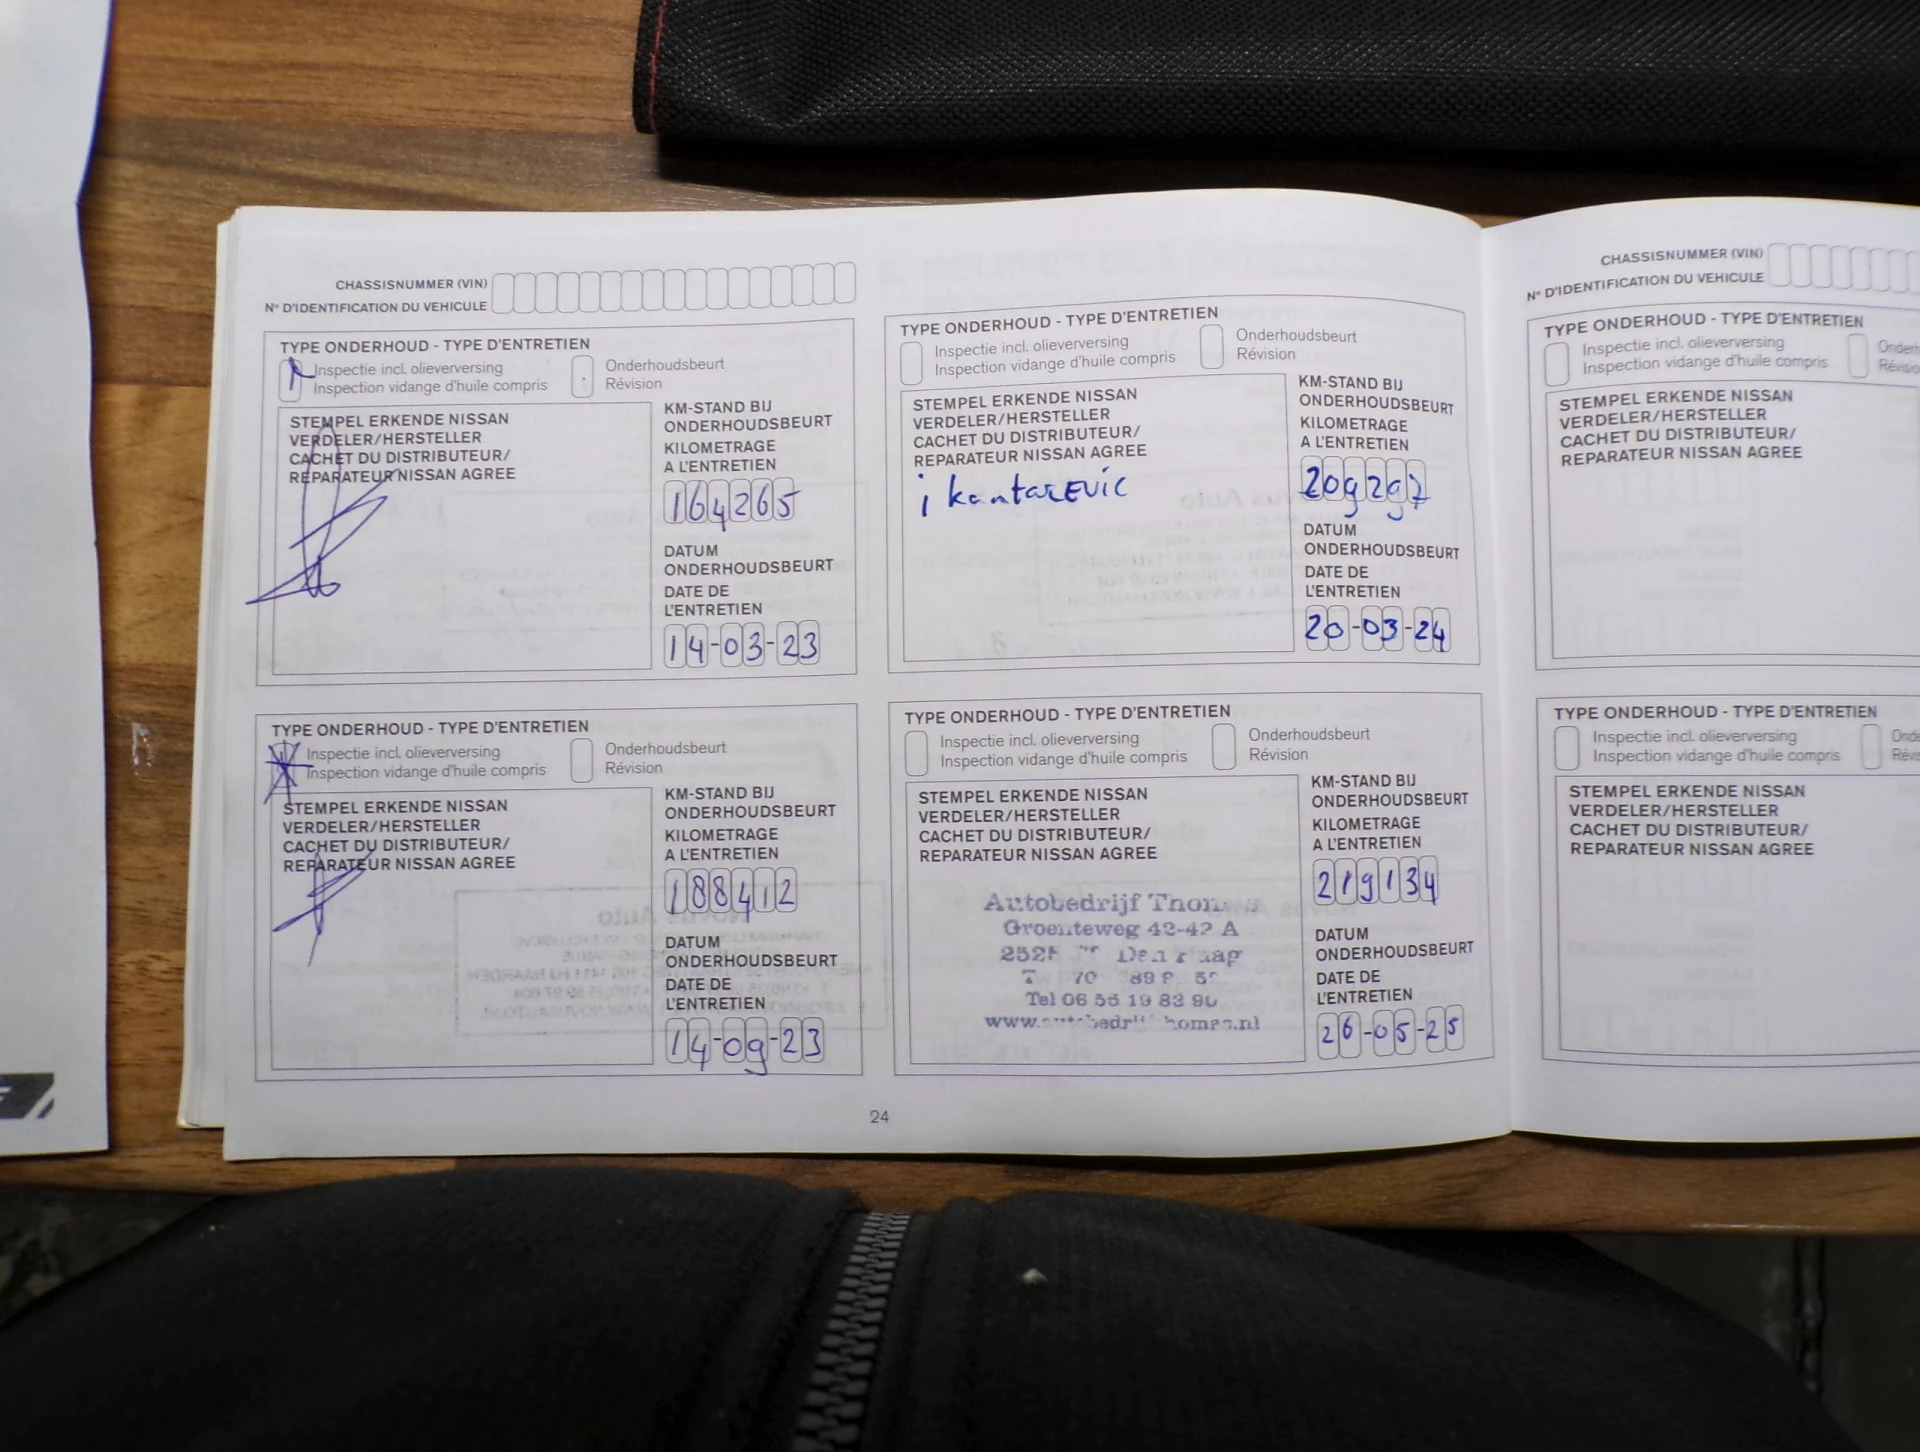 CHASSISNUMMER (VIN)
N° D'IDENTIFICATION DU VEHICULE
TYPE ONDERHOUD - TYPE D'ENTRETIEN
Inspectie incl. olieverversing
Inspection vidange d'huile compris
Onderhoudsbeurt
Révision
STEMPEL ERKENDE NISSAN
VERDELER/HERSTELLER
CACHET DU DISTRIBUTEUR/
REPARATEUR NISSAN AGREE
KM-STAND BIJ
ONDERHOUDSBEURT
KILOMETRAGE
A L'ENTRETIEN
164265
DATUM
ONDERHOUDSBEURT
DATE DE
L'ENTRETIEN
14-03-23
TYPE ONDERHOUD - TYPE D'ENTRETIEN
Inspectie incl. olieverversing
Inspection vidange d'huile compris
Onderhoudsbeurt
Révision
STEMPEL ERKENDE NISSAN
VERDELER/HERSTELLER
CACHET DU DISTRIBUTEUR/
REPARATEUR NISSAN AGREE
KM-STAND BIJ
ONDERHOUDSBEURT
KILOMETRAGE
A L'ENTRETIEN
188412
DATUM
ONDERHOUDSBEURT
DATE DE
L'ENTRETIEN
14-09-23
TYPE ONDERHOUD - TYPE D'ENTRETIEN
Inspectie incl. olieverversing
Inspection vidange d'huile compris
Onderhoudsbeurt
Révision
STEMPEL ERKENDE NISSAN
VERDELER/HERSTELLER
CACHET DU DISTRIBUTEUR/
REPARATEUR NISSAN AGREE
i kantarEvic
KM-STAND BIJ
ONDERHOUDSBEURT
KILOMETRAGE
A L'ENTRETIEN
209297
DATUM
ONDERHOUDSBEURT
DATE DE
L'ENTRETIEN
20-03-24
TYPE ONDERHOUD - TYPE D'ENTRETIEN
Inspectie incl. olieverversing
Inspection vidange d'huile compris
Onderhoudsbeurt
Révision
STEMPEL ERKENDE NISSAN
VERDELER/HERSTELLER
CACHET DU DISTRIBUTEUR/
REPARATEUR NISSAN AGREE
Autobedrijf
Groenteweg 42-42 A
Den Haag
Tel 06 55 19 83 90
KM-STAND BIJ
ONDERHOUDSBEURT
KILOMETRAGE
A L'ENTRETIEN
219134
DATUM
ONDERHOUDSBEURT
DATE DE
L'ENTRETIEN
26-05-25
24
CHASSISNUMMER (VIN)
N° D'IDENTIFICATION DU VEHICULE
TYPE ONDERHOUD - TYPE D'ENTRETIEN
Inspectie incl. olieverversing
Inspection vidange d'huile compris
STEMPEL ERKENDE NISSAN
VERDELER/HERSTELLER
CACHET DU DISTRIBUTEUR/
REPARATEUR NISSAN AGREE
TYPE ONDERHOUD - TYPE D'ENTRETIEN
Inspectie incl. olieverversing
Inspection vidange d'huile compris
STEMPEL ERKENDE NISSAN
VERDELER/HERSTELLER
CACHET DU DISTRIBUTEUR/
REPARATEUR NISSAN AGREE